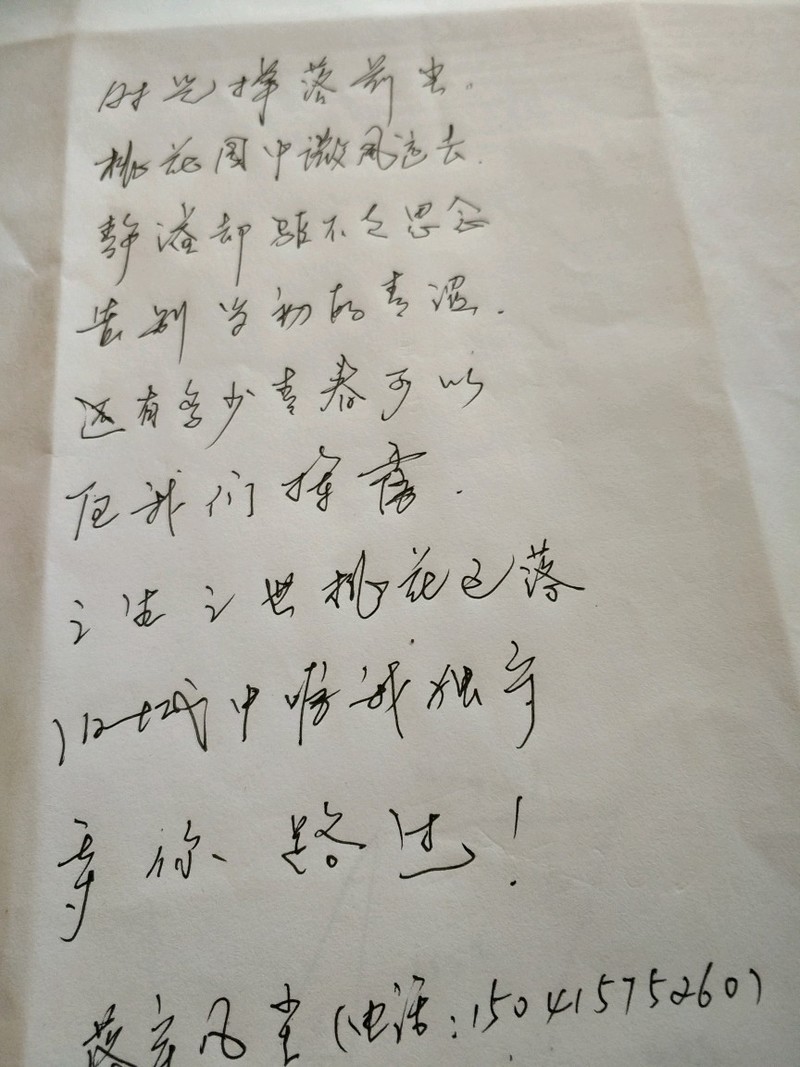 时光掸落前尘。
桃花园中微风远去.
静谧却驱不走思念
告别当初的青涩.
还有多少青春可以
任我们挥霍.
三生三世桃花已落
旧城中我独守
等你路过!
落风尘(电话:15041575260)